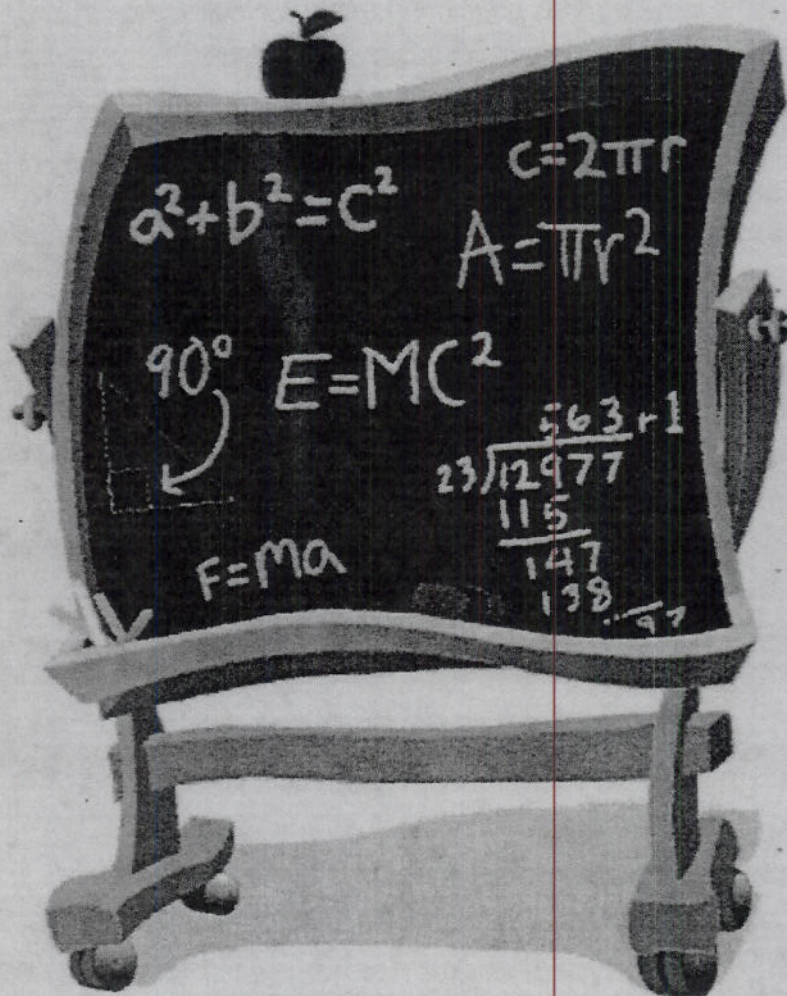 a²+b²=c²
c=2πr
A=πr²
90°
E=MC²
563 r 1
23)12977
115
147
138
97
F=Ma